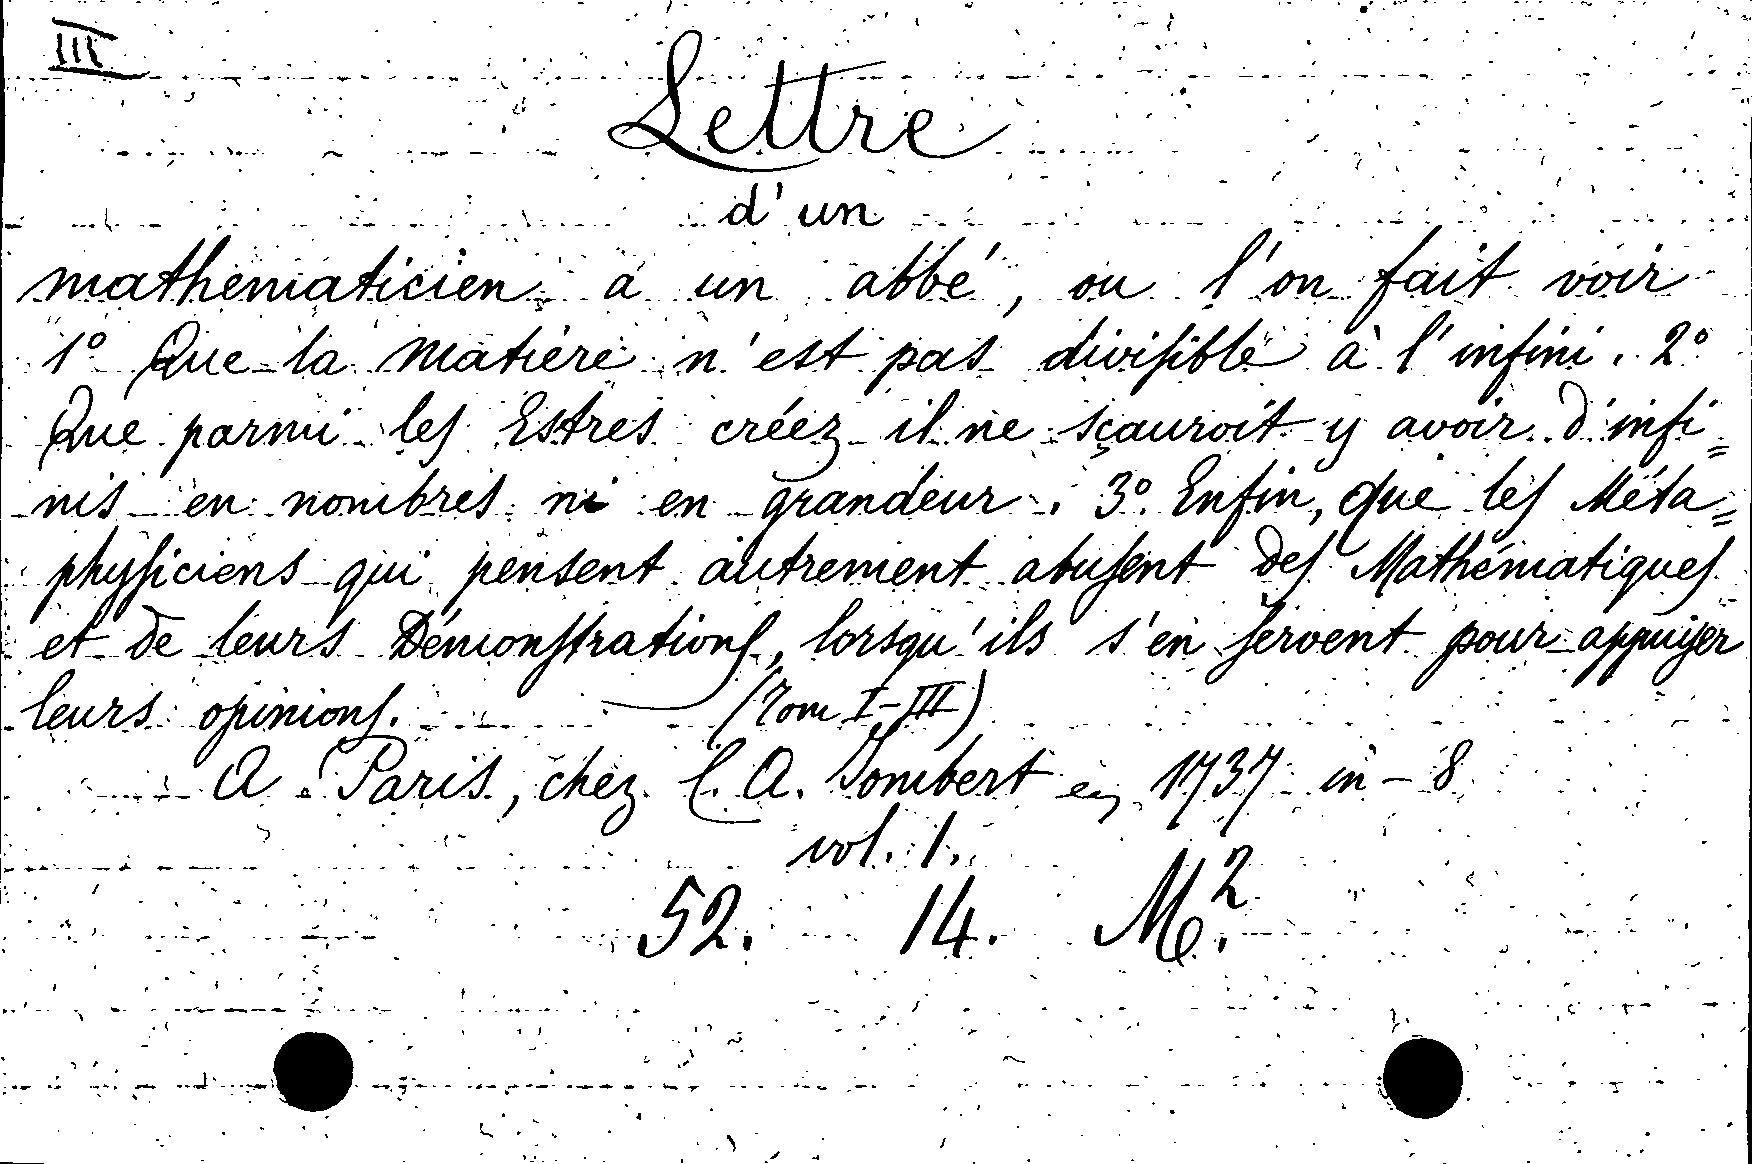 III
Lettre
d'un
mathematicien a un abbé, ou l'on fait voir
1° Que la Matiére n'est pas diviſible à l'infini. 2°
Que parmi leſ Estres créez il ne sçauroit y avoir d'infi=
nis en nombres ni en grandeur. 3° Enfin, que leſ Méta=
phyſiciens qui pensent autrement abuſent deſ Mathématiqueſ
et de leurs Démonſtrationſ, lorsqu'ils s'en ſervent pour appuyer
leurs opinionſ. (Tom I-III)
A Paris, chez C. A. Jombert en 1737 in-8
vol. 1.
52. 14. M.²